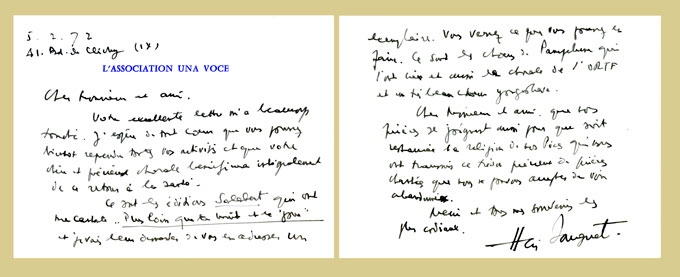 5.2.72
41. Bd. de Clichy (IX)
L'ASSOCIATION UNA VOCE
Cher Monsieur et ami.
Votre excellente lettre m'a beaucoup
touché. J'espère de tout cœur que vous pourrez
bientôt reprendre toutes vos activités et que votre
chère et précieuse chorale bénéficiera intégralement
de ce retour à la santé.
Ce sont les éditions Salabert qui ont
ma cantate "Plus loin que la nuit et le jour"
et je vais leur demander de vous en adresser un
exemplaire. Vous verrez ce que vous pourrez en
faire. Ce sont les chœurs de Pampelune qui
l'ont créé et aussi la chorale de l'ORTF
et un très beau chœur yougoslave.
Cher Monsieur et ami, que vos
prières se joignent aussi pour que soit
restaurée la religion de nos Pères qui nous
ont transmis ce trésor précieux de prières
chantées que nous ne pouvons accepter de voir
abandonnées.
Merci et tous mes souvenirs les
plus cordiaux.
Henri Sauguet.